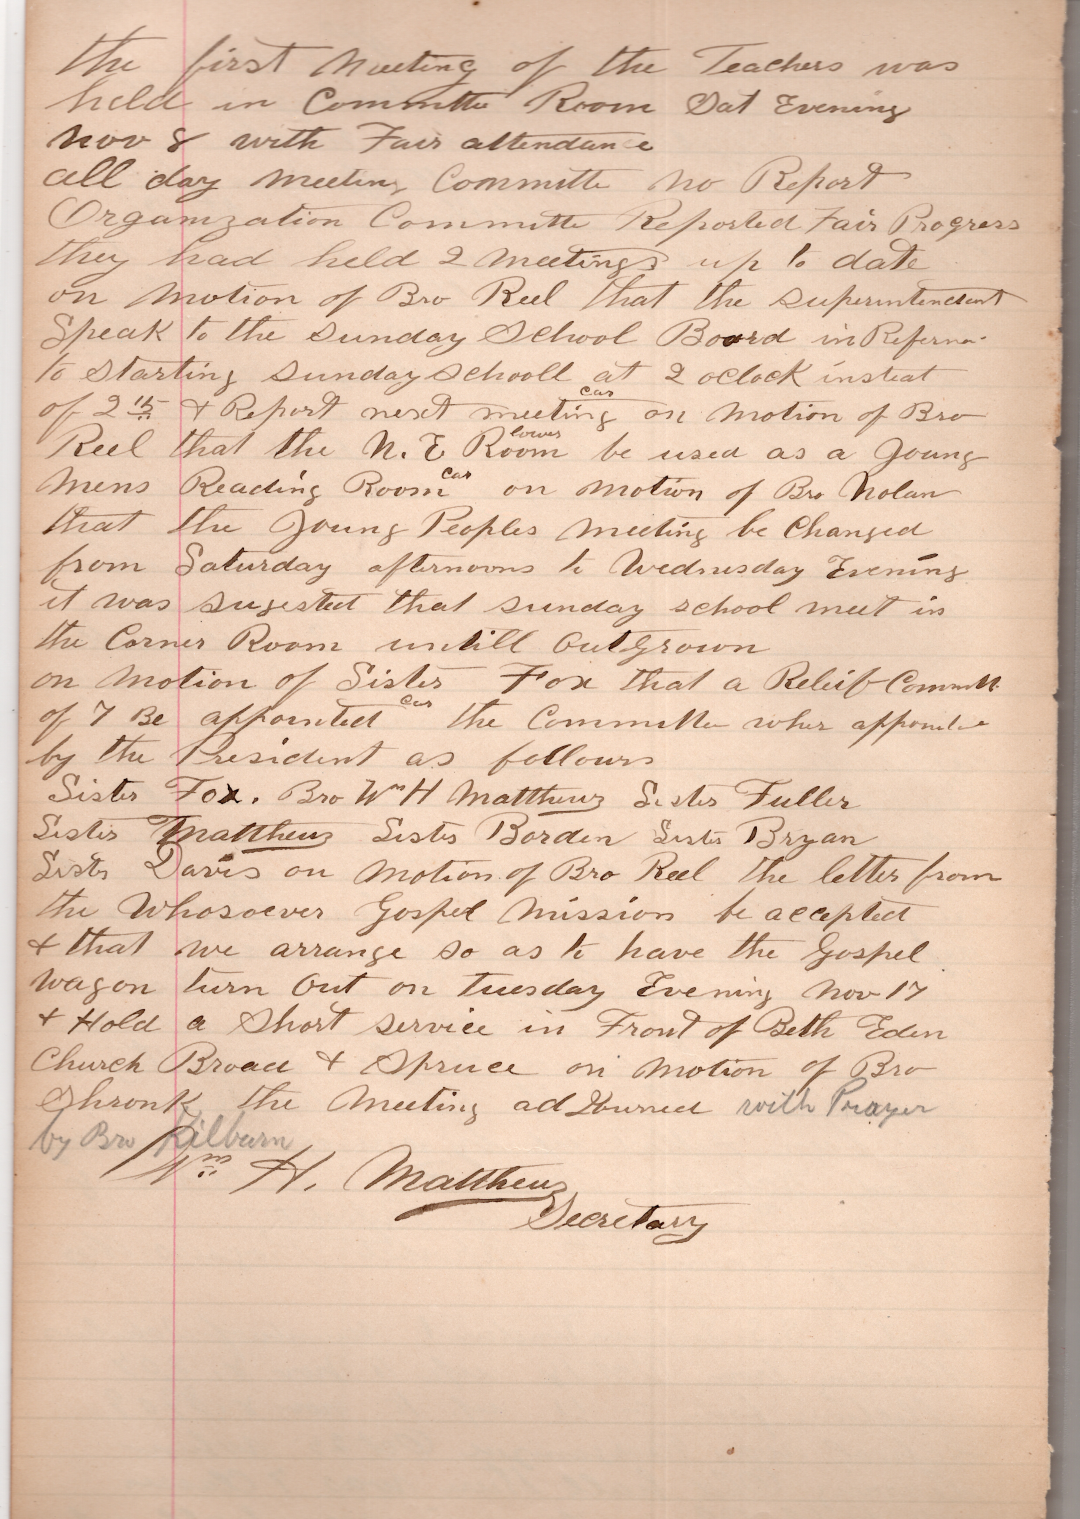 the first Meeting of the Teachers was
held in Committe Room Sat Evening
Nov 8 with Fair attendance
all day meeting Committe no Report
Organization Committe Reported Fair Progress
they had held 2 meetings up to date
on motion of Bro Reel that the superintendent
Speak to the Sunday School Board in Referna
to starting Sunday Schooll at 2 oclock insteat
of 2 15 & Report next meeting car on motion of Bro
Reel that the N. E lower Room be used as a Young
Mens Reading Room car on motion of Bro Nolan
that the Young Peoples meeting be Changed
from Saturday afternoons to Wednesday Evening
it was sugested that Sunday school meet in
the Corner Room untill Outgrown
on motion of Sister Fox that a Releif Committ
of 7 Be appointed car the Committe wher appointe
by the President as follows
Sister Fox. Bro Wm H Matthews Sister Fuller
Sister Matthews Sister Borden Sister Bryan
Sister Davis on motion of Bro Reel the letter from
the Whosoever Gospel Mission be accepted
& that we arrange so as to have the Gospel
wagon turn Out on Tuesday Evening Nov 17
& Hold a Short service in Front of Beth Eden
Church Broad & Spruce on motion of Bro
Shronk the Meeting adJourned with Prayer
by Bro Kilburn
Wm H. Matthews
Secretary